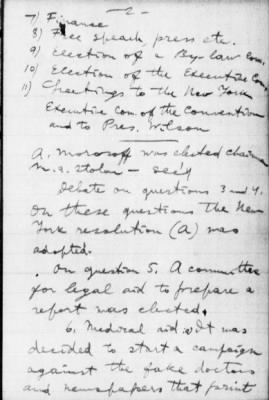 - 2 -
7) Finance
8) Free speach, press etc.
9) Election of a By-law Com.
10) Election of the Executive Com.
11) Greetings to the New York
Executive Com. of the Convention
and to Pres. Wilson
A. Morosoff was elected chairman
M. A. Stolar - sec'y
Debate on questions 3 and 4.
On these questions the New
York resolution (A) was
adopted.
On question 5. A committee
for legal aid to prepare a
report was elected.
6. Medical aid. It was
decided to start a campaign
against the fake doctors
and newspapers that print